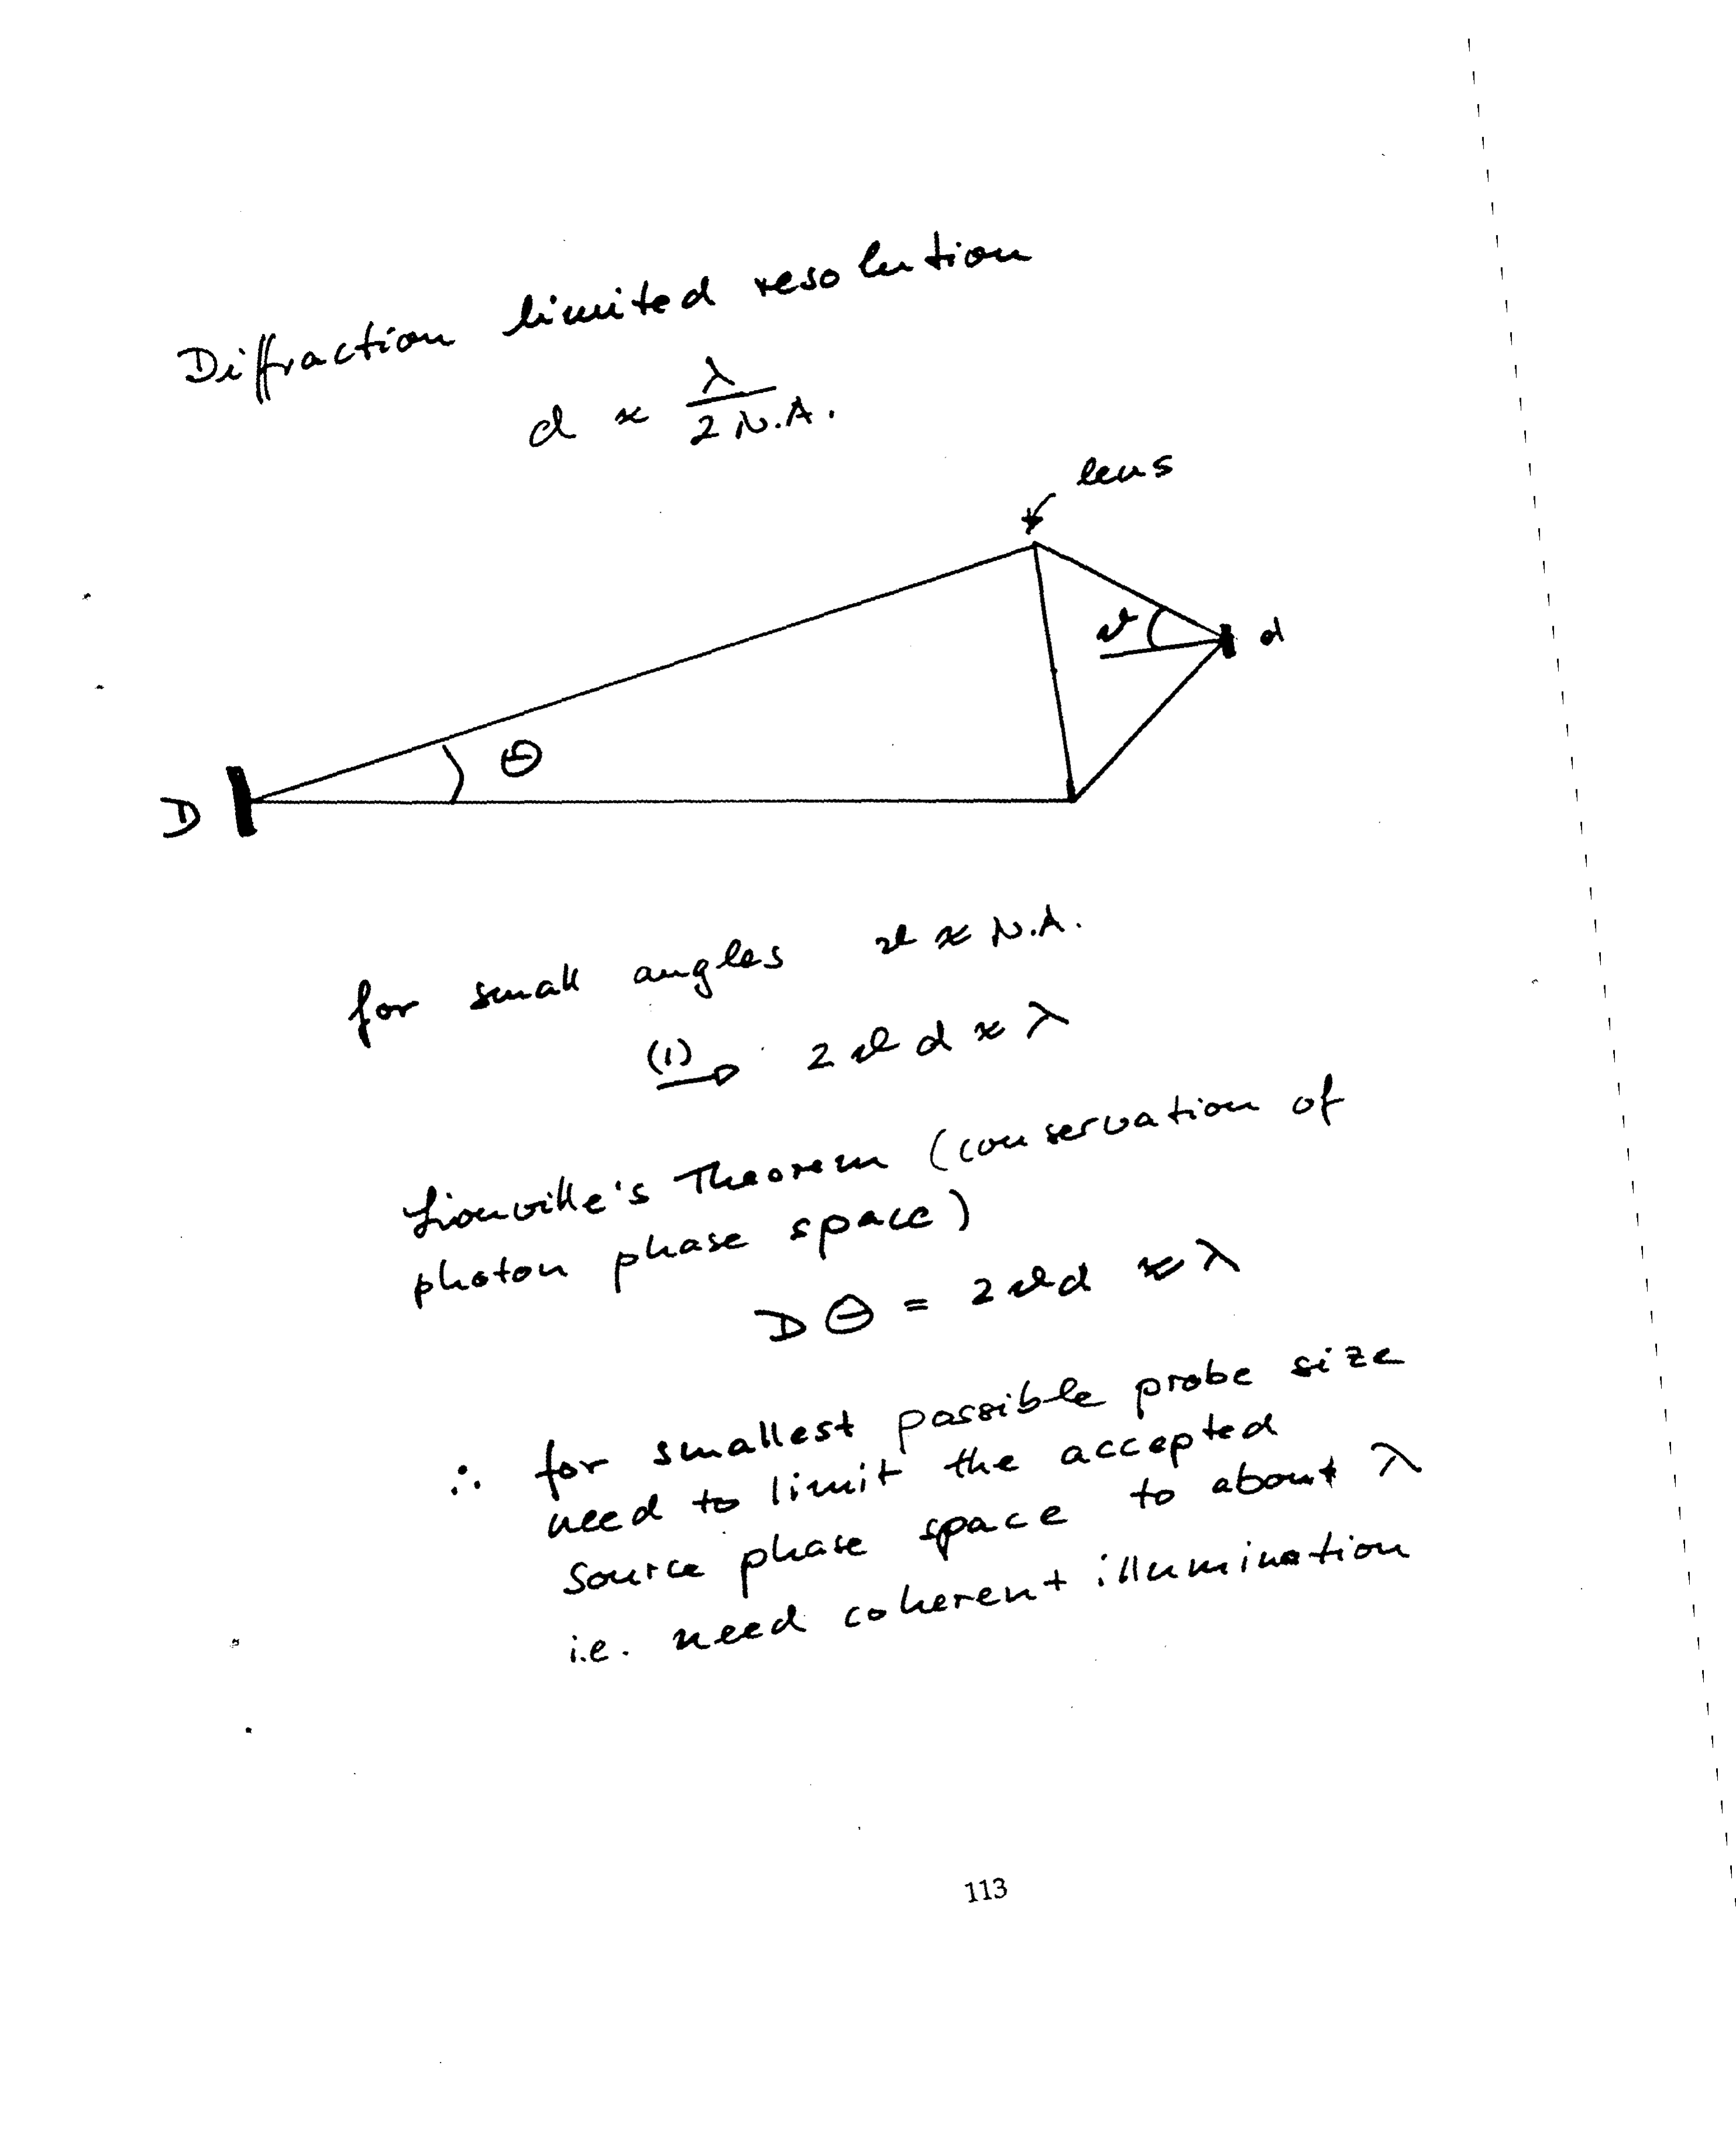 Diffraction limited resolution
d ≈ λ / 2 N.A.
lens
ϑ
d
Θ
D
for small angles ϑ ≈ N.A.
(1) → 2 ϑ d ≈ λ
Liouville's Theorem (conservation of
photon phase space)
D Θ = 2 ϑ d ≈ λ
∴ for smallest possible probe size
need to limit the accepted
source phase space to about λ
i.e. need coherent illumination
113